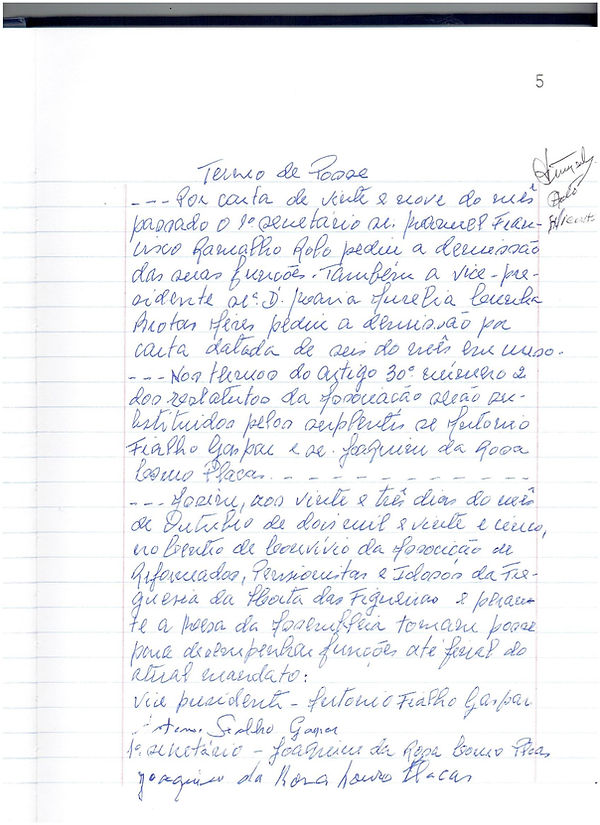 5
Termo de Posse
--- Por carta de vinte e nove do mês
passado o 1º secretário sr. Manuel Fran-
cisco Ramalho Rolo pediu a demissão
das suas funções. Também a vice-pre-
sidente srª. D. Maria Aurelia Cunha
Brotas Aires pediu a demissão por
carta datada de seis do mês em curso.
--- Nos termos do artigo 30º número 2
dos estatutos da Associação serão su-
bstituidos pelos suplentes sr Antonio
Fialho Gaspar e sr. Joaquim da Rosa
Placas. - - - - - - - - - - - -
--- Assim, aos vinte e três dias do mês
de Outubro de dois mil e vinte e cinco,
no Centro de Convívio da Associação de
Reformados, Pensionistas e Idosos da Fre-
guesia da Horta das Figueiras e peran-
te a Mesa da Assembleia tomam posse
para desempenhar funções até final do
atual mandato:
Vice presidente - Antonio Fialho Gaspar
Fialho Gaspar
1º secretário - Joaquim da Rosa Placas
Joaquim da Rosa Placas